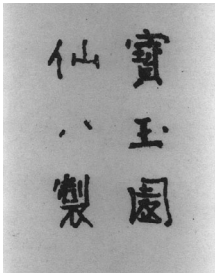 寶玉園
仙八製